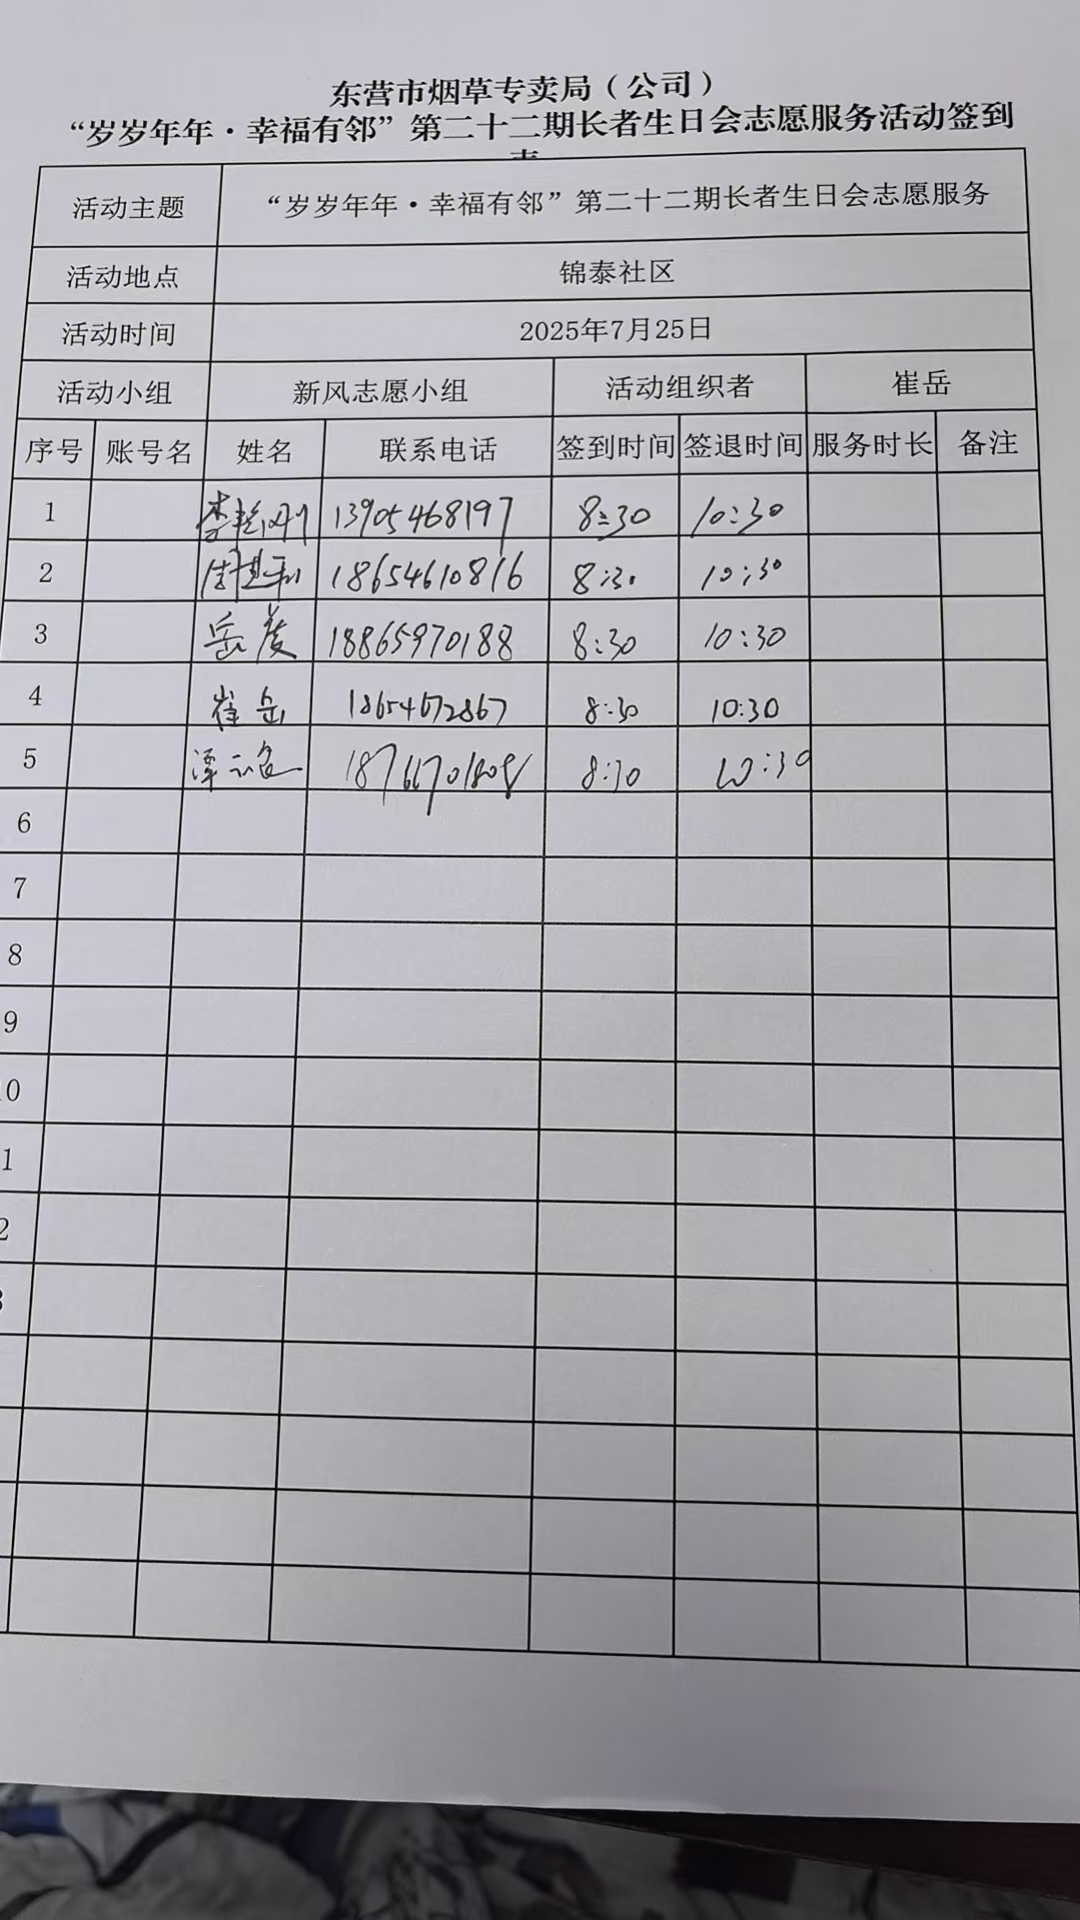 东营市烟草专卖局（公司）
“岁岁年年·幸福有邻”第二十二期长者生日会志愿服务活动签到
表
活动主题 “岁岁年年·幸福有邻”第二十二期长者生日会志愿服务
活动地点 锦泰社区
活动时间 2025年7月25日
活动小组 新风志愿小组 活动组织者 崔岳
序号 账号名 姓名 联系电话 签到时间 签退时间 服务时长 备注
1 李 13905468197 8:30 10:30
2 18654610816 8:30 10:30
3 岳 18865970188 8:30 10:30
4 崔岳 18654672867 8:30 10:30
5 8:30 10:30
6
7
8
9
0
1
2
3